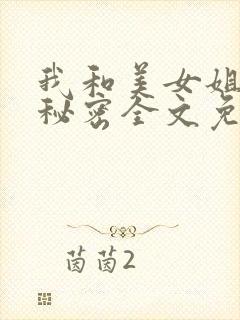 我和美女姐
秘密全文免
茵茵2